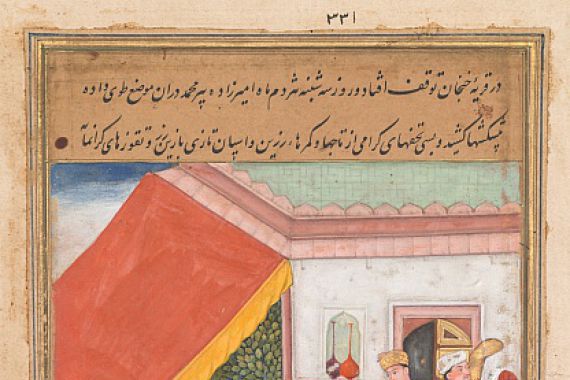 ۳۳۱
در قریهٔ خنجان توقف افتاد و روز سه شنبه شردم ماه امیرزاده پیر محمد در ان موضع طوی داده
پیشکشها کشید و بسی تحفهای کرامی از تاجها و کمرها، زرین و اسپان تازی بازین زر و تقوزهای کرانما